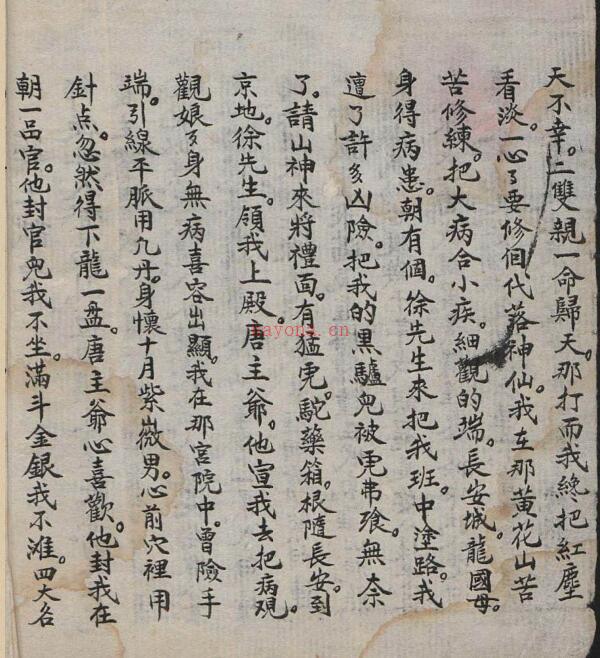 天不幸。二雙親一命歸天。那打而我終把紅塵
看淡。一心了要修個代落神仙。我在那黄花山苦
苦修練。把大病合小疾。細觀的瑞。長安城。龍國母。
身得病患。朝有個。徐先生來把我班。中塗路。我
遭了許多凶險。把我的黑驢兒被虎弗飡。無奈
了。請山神來將禮面。有猛虎。駝藥箱。根隨長安。到
京地。徐先生。領我上殿。唐主爺。他宣我去把病觀。
觀娘々身無病喜容出顯。我在那宮院中。曾險手
瑞。引線平脈用九丹。身懷十月紫微男。心前穴裡用
針点。忽然得下龍一盘。唐主爺心喜歡。他封我在
朝一品官。他封官兒我不坐。滿斗金銀我不滩。四大名
nayong.cn